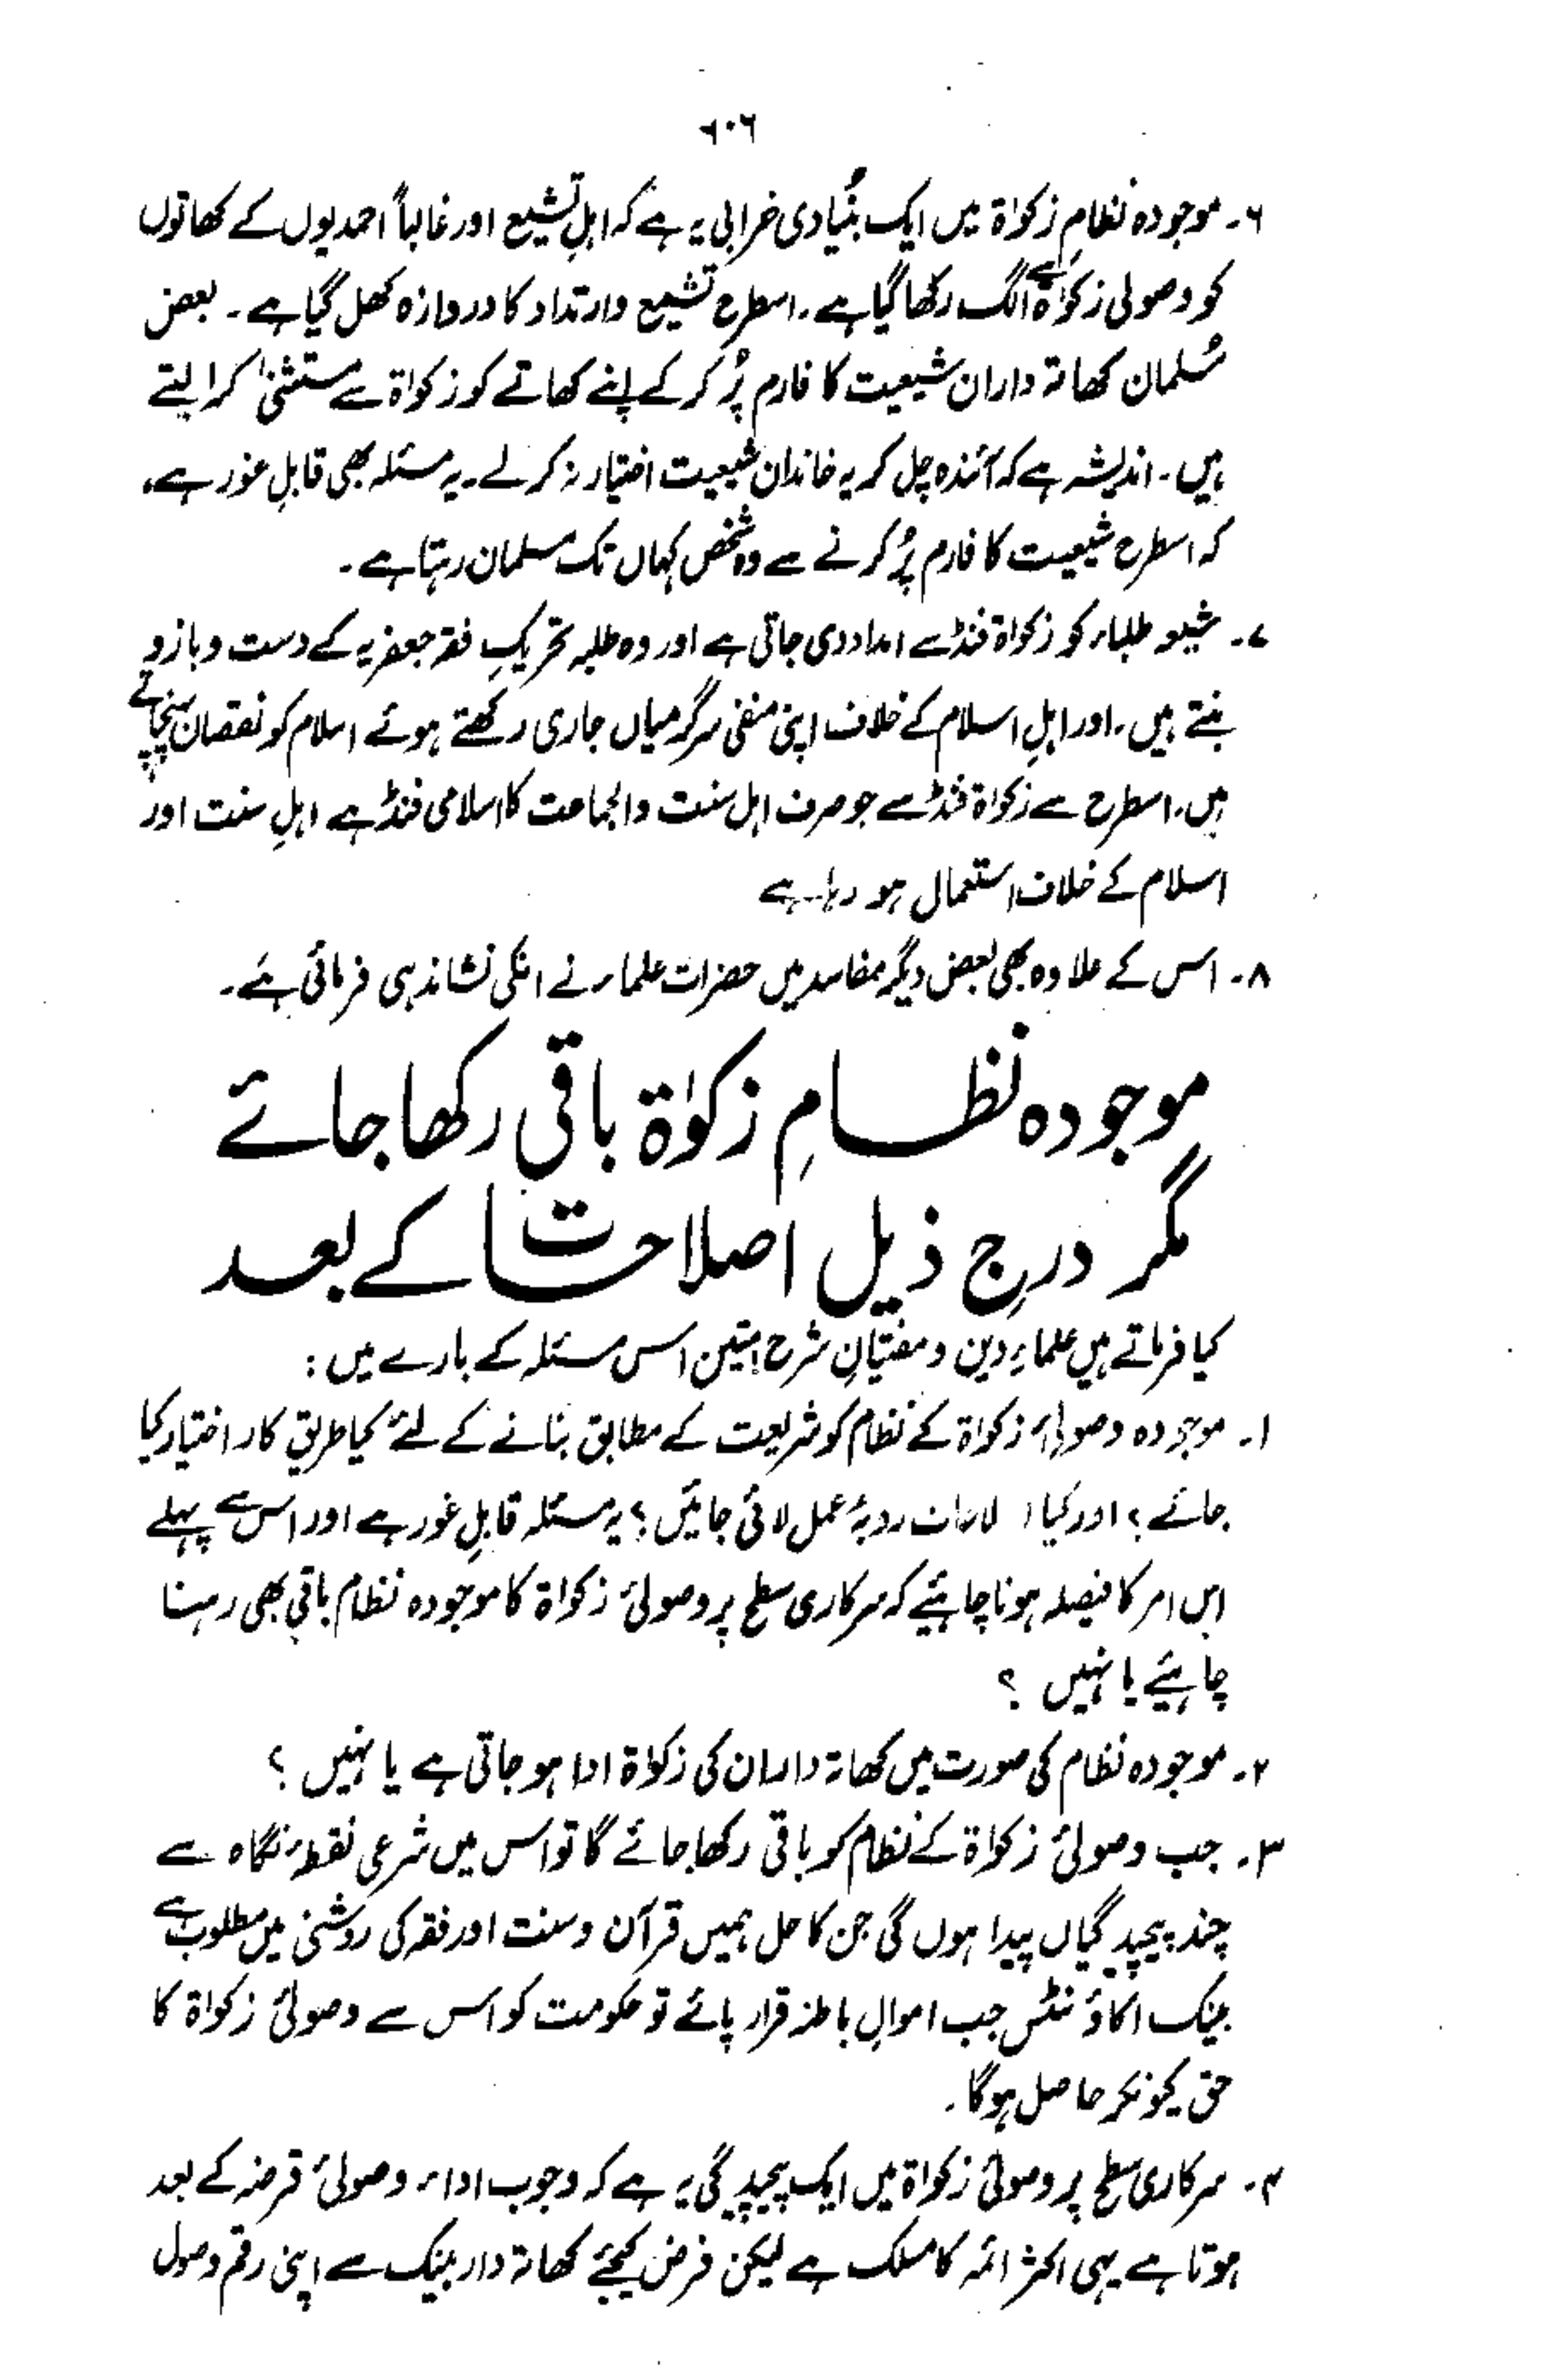 ٦٠٦
٦۔ موجودہ نظامِ زکوٰۃ میں ایک بنُیادی خرابی یہ ہے کہ اہلِ تشیع اور غالباً احمدیوں کے کھاتوں
کو وصولی زکوٰۃ سے الگ رکھا گیا ہے۔ اسطرح تشیع وارتداد کا دروازہ کھل گیا ہے۔ بعض
مُسلمان کھاتہ داران شیعیت کا فارم پُر کر کے اپنے کھاتے کو زکواۃ سے مستثنیٰ کرا لیتے
ہیں۔ اندیشہ ہے کہ آئندہ چل کر یہ خاندان شیعیت اختیار نہ کر لے۔ یہ مسئلہ بھی قابلِ غور ہے،
کہ اسطرح شیعیت کا فارم پُر کرنے سے وہ شخص کہاں تک مسلمان رہتا ہے۔
۷۔ شیعہ طلباء کو زکواۃ فنڈ سے امداد دی جاتی ہے اور وہ طلبہ تحریکِ فقہ جعفریہ کے دست و بازو
بنتے ہیں۔ اور اہلِ اسلام کے خلاف اپنی منفی سرگرمیاں جاری رکھتے ہوئے اسلام کو نقصان پہنچاتے
ہیں۔ اسطرح سے زکواۃ فنڈ سے جو صرف اہل سنت والجماعت کا اسلامی فنڈ ہے اہلِ سنت اور
اسلام کے خلاف استعمال ہو رہا ہے
۸۔ اس کے علاوہ بھی بعض دیگر مفاسد ہیں حضرات علماء نے انکی نشاندہی فرمائی ہے۔
موجودہ نظامِ زکوٰۃ باقی رکھا جائے
مگر درج ذیل اصلاحات کے بعد
کیا فرماتے ہیں علماءِ دین و مفتیانِ شرح متین اس مسئلہ کے بارے میں :
۱۔ موجودہ وصولیٔ زکواۃ کے نظام کو شریعت کے مطابق بنانے کے لئے کیا طریق کار اختیار کیا
جائے؟ اور کیا ا لاحات روبۂ عمل لائی جائیں؟ یہ مسئلہ قابلِ غور ہے اور اس سے پہلے
اس امر کا فیصلہ ہونا چاہیئے کہ سرکاری سطح پر وصولیٔ زکواۃ کا موجودہ نظام باقی بھی رہنا
چاہیئے یا نہیں ؟
۲۔ موجودہ نظام کی صورت میں کھاتہ داران کی زکوٰۃ ادا ہو جاتی ہے یا نہیں ؟
۳۔ جب وصولیٔ زکواۃ کے نظام کو باقی رکھا جائے گا تو اس میں شرعی نقطۂ نگاہ سے
چند پیچیدگیاں پیدا ہوں گی جن کا حل ہمیں قرآن و سنت اور فقہ کی روشنی میں مطلوب ہے
بینک اکاؤنٹس جب اموالِ باطنہ قرار پائے تو حکومت کو اس سے وصولیٔ زکواۃ کا
حق کیونکر حاصل ہو گا۔
۴۔ سرکاری سطح پر وصولیٔ زکواۃ میں ایک پیچیدگی یہ ہے کہ وجوب اداء وصولیٔ قرضہ کے بعد
ہوتا ہے یہی اکثر ائمہ کا مسلک ہے لیکن فرض کیجئے کھاتہ دار بینک سے اپنی رقم وصول